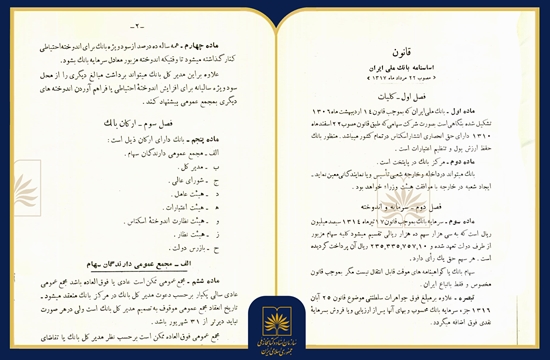 قانون
اساسنامه بانک ملی ایران
« مصوب ۲۲ مرداد ماه ۱۳۱۷ »
فصل اول - کلیات
ماده اول - بانک ملی ایران که بموجب قانون ۱۴ اردیبهشت ماه ۱۳۰۶
تشکیل شده بنگاهی است بصورت شرکت سهامی که طبق قانون مصوب ۲۲ اسفندماه
۱۳۱۰ دارای حق انحصاری انتشار اسکناس در تمام کشور میباشد. منظور بانک
حفظ ارزش پول و تنظیم اعتبارات است.
ماده دوم - مرکز بانک در پایتخت است.
بانک میتواند در داخله و خارجه شعبی تأسیس و یا نمایندگانی معین نماید.
ایجاد شعبه در خارجه با موافقت هیئت وزراء خواهد بود.
فصل دوم - سرمایه و اندوخته
ماده سوم - سرمایه بانک بموجب قانون ۱۷ تیرماه ۱۳۱۴ سیصد میلیون
ریال است که به سی هزار سهم ده هزار ریالی تقسیم میشود کلیه سهام مزبور
از طرف دولت تعهد شده و ۲۳۵,۳۳۵,۷۵۷,۱۰ ریال آن پرداخت گردیده
است. هر سهم حق یک رأی دارد.
سهام بانک یا گواهینامه های موقت قابل انتقال نیست مگر بموجب قانون
مخصوص و فقط باتباع ایران.
تبصره - علاوه بر مبلغ فوق جواهرات سلطنتی موضوع قانون ۲۵ آبان
۱۳۱۶ جزء سرمایه بانک محسوب و بهای آنها پس از ارزیابی و یا فروش بسرمایهٔ
نقدی فوق اضافه میگردد.
-۲-
ماده چهارم - همه ساله ده درصد از سود ویژه بانک برای اندوخته احتیاطی
کنار گذاشته میشود تا وقتیکه اندوخته مزبور معادل سرمایه بانک بشود.
علاوه بر این مدیر کل بانک میتواند برداشت مبالغ دیگری را از محل
سود ویژه سالیانه برای افزایش اندوختهٔ احتیاطی یا فراهم آوردن اندوخته های
دیگری بمجمع عمومی پیشنهاد کند.
فصل سوم - ارکان بانک
ماده پنجم - بانک دارای ارکان ذیل است :
الف - مجمع عمومی دارندگان سهام.
ب - مدیر کل.
ج - شورای عالی.
د - هیئت عامل.
ه - هیئت اعتبارات.
و - هیئت نظارت اندوختهٔ اسکناس.
ز - هیئت نظار.
ح - بازرس دولت.
الف - مجمع عمومی دارندگان سهام
ماده ششم - مجمع عمومی ممکن است عادی یا فوق العاده باشد مجمع عمومی
عادی سالی یکبار بر حسب دعوت مدیر کل بانک در مرکز بانک منعقد میشود.
تاریخ انعقاد مجمع عمومی موقوف به تصمیم مدیر کل بانک است ولی در هر صورت
نباید دیرتر از ۳۱ شهریور باشد.
مجمع عمومی فوق العاده ممکن است بر حسب نظر مدیر کل بانک یا تقاضای
سازمان اسناد و کتابخانه ملی
جمهوری اسلامی ایران